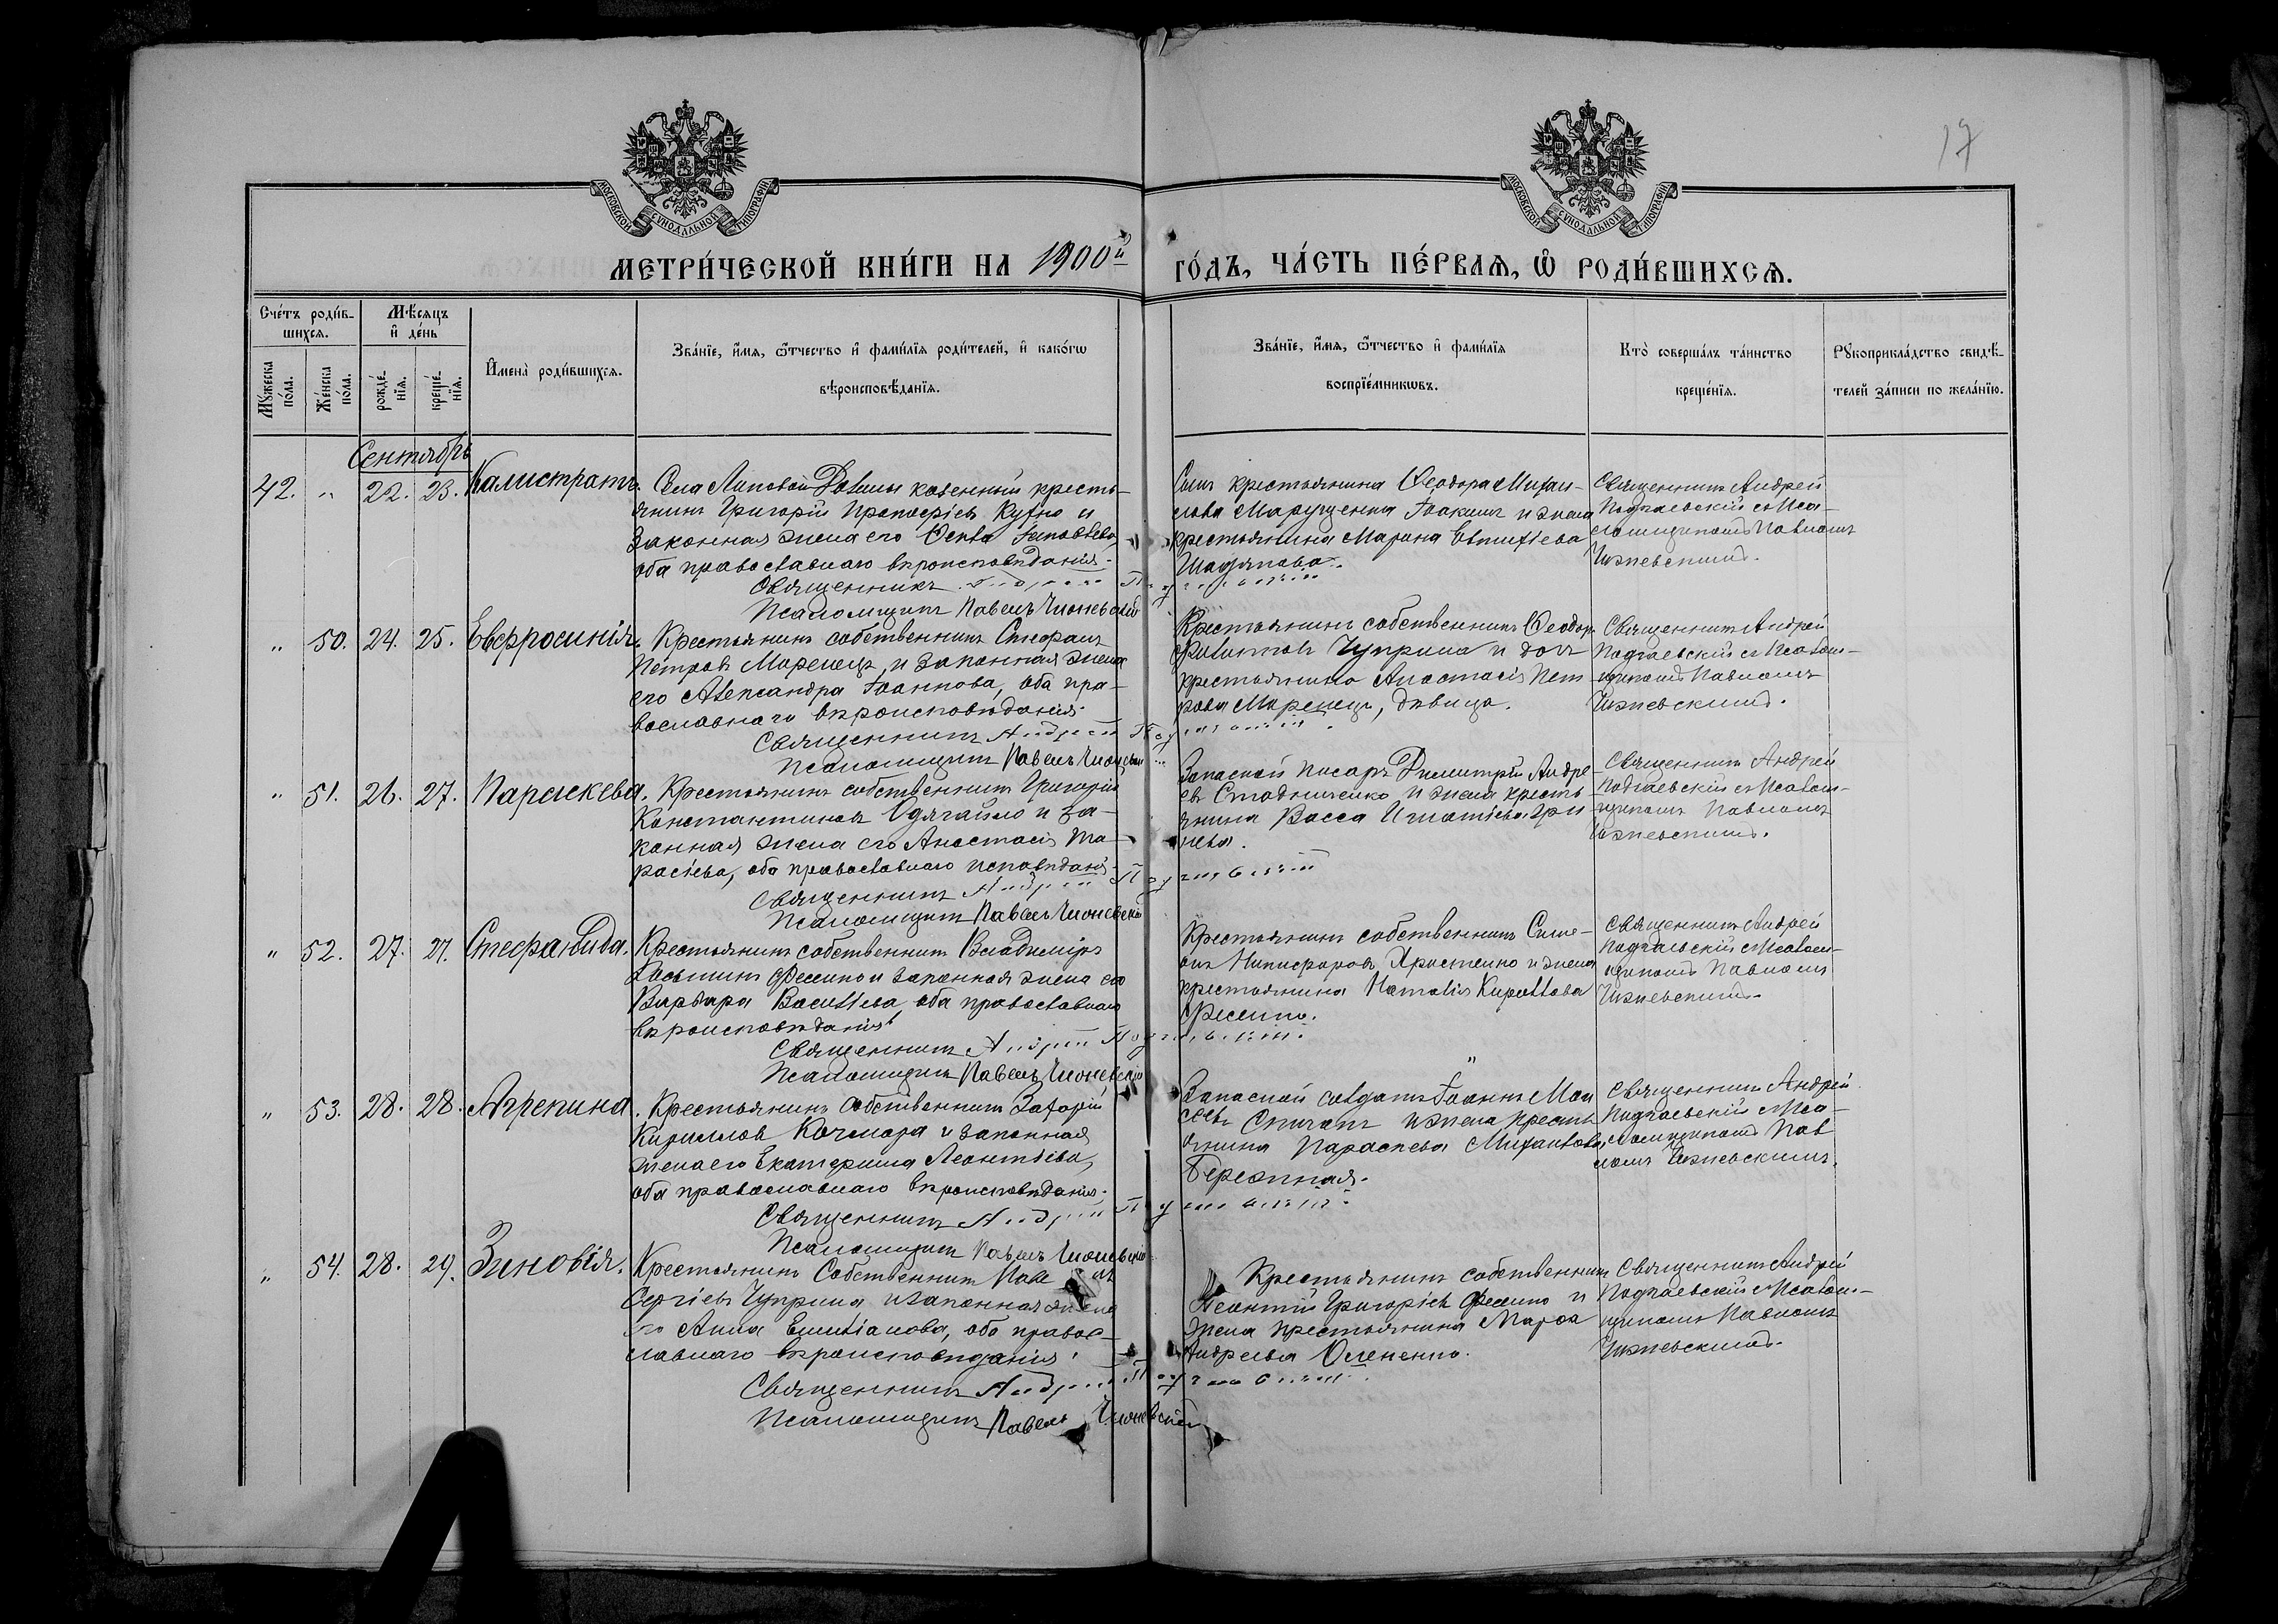 17
МОСКОВСКОЙ СѴНОДАЛЬНОЙ ТИПОГРАФІИ
МОСКОВСКОЙ СѴНОДАЛЬНОЙ ТИПОГРАФІИ
МЕТРИ́ЧЕСКОЙ КНИ́ГИ НА 1900й ГО́ДЪ, ЧА́СТЬ ПЕ́РВАѦ, Ѡ РОДИ́ВШИХСѦ.
Сче́тъ роди́в-
шихсѧ.
Мꙋ́жеска по́ла.
Же́нска по́ла.
Мѣ́сѧцъ и де́нь
рожде́-нїѧ.
креще́-нїѧ.
И҆мена̀ роди́вшихсѧ.
Зва́нїе, и҆́мѧ, ѻ҆́тчество и҆ фами́лїѧ роди́телей, и҆ како́гѡ
вѣроисповѣ́данїѧ.
Зва́нїе, и҆́мѧ, ѻ҆́тчество и҆ фами́лїѧ
воспрїе́мникѡвъ.
Кто̀ соверша́лъ та́инство
креще́нїѧ.
Рꙋкоприкла́дство свидѣ́-
телей за́писи по жела́нїю.
Сентябрь
42. " 22. 23. Калистратъ.
Села Липовой Долины казенный кресть-
янинъ Григорій Прокофіевъ Кухно и
законная жена его Ѳекла
оба православнаго вѣроисповѣданія.
Священникъ Андрей
Псаломщикъ Павелъ
Сынъ крестьянина Ѳеодора Михаи-
лова Марущенка Іоакимъ и жена
крестьянина Марина Евтихіева
Шадрпова.
Священникъ Андрей
Подгаевскій съ Пса-
ломщикомъ Павломъ
" 50. 24. 25. Евфросинія.
Крестьянинъ собственникъ Стефанъ
Петровъ Маренецъ, и законная жена
его Александра Іоаннова, оба пра-
вославнаго вѣроисповѣданія.
Священникъ Андрей
Псаломщикъ Павелъ
Крестьянинъ собственникъ Ѳеодоръ
Филипповъ Чуприна и дочь
крестьянина Анастасія Пет
рова Маренецъ, дѣвица.
Священникъ Андрей
Подгаевскій съ Псалом-
щикомъ Павломъ
" 51. 26. 27. Параскева.
Крестьянинъ собственникъ Григорій
Константиновъ Одягайло и за-
конная жена его Анастасія Та-
расіева, оба православнаго исповѣданія.
Священникъ Андрей
Псаломщикъ Павелъ
Запасной писарь Димитрій Андре
евъ Стадниченко и жена кресть
янина Васса Игнатіева Гри
нева.
Священникъ Андрей
Подгаевскій съ Псалом-
щикомъ Павломъ
" 52. 27. 27. Стефанида.
Крестьянинъ собственникъ Владиміръ
Косьминъ Фесенко и законная жена его
Варвара Василіева, оба православнаго
вѣроисповѣданія.
Священникъ Андрей
Псаломщикъ Павелъ
Крестьянинъ собственникъ Симе-
онъ Никифоровъ Христенко и жена
крестьянина Наталія Кириллова
Фесенко.
Священникъ Андрей
Подгаевскій съ Псалом-
щикомъ Павломъ
" 53. 28. 28. Агрепина.
Крестьянинъ собственникъ Захарій
Кирилловъ Кочмара и законная
жена его Екатерина Леонтіева,
оба православнаго вѣроисповѣданія.
Священникъ Андрей
Псаломщикъ Павелъ
Запасной солдатъ Іоаннъ Мои
сеевъ Спичакъ и жена кресть
янина Параскева Михаилова
Бережная.
Священникъ Андрей
Подгаевскій съ Пса-
ломщикомъ Пав
ломъ
" 54. 28. 29. Зиновія.
Крестьянинъ Собственникъ
Сергіевъ Чуприна и законная жена
его Анна Емиліанова, оба правос-
лавнаго вѣроисповѣданія.
Священникъ Андрей
Псаломщикъ Павелъ
Крестьянинъ собственникъ
Леонтій Григоріевъ Фесенко и
жена крестьянина Марѳа
Андреева Олененко.
Священникъ Андрей
Подгаевскій съ Псалом-
щикомъ Павломъ